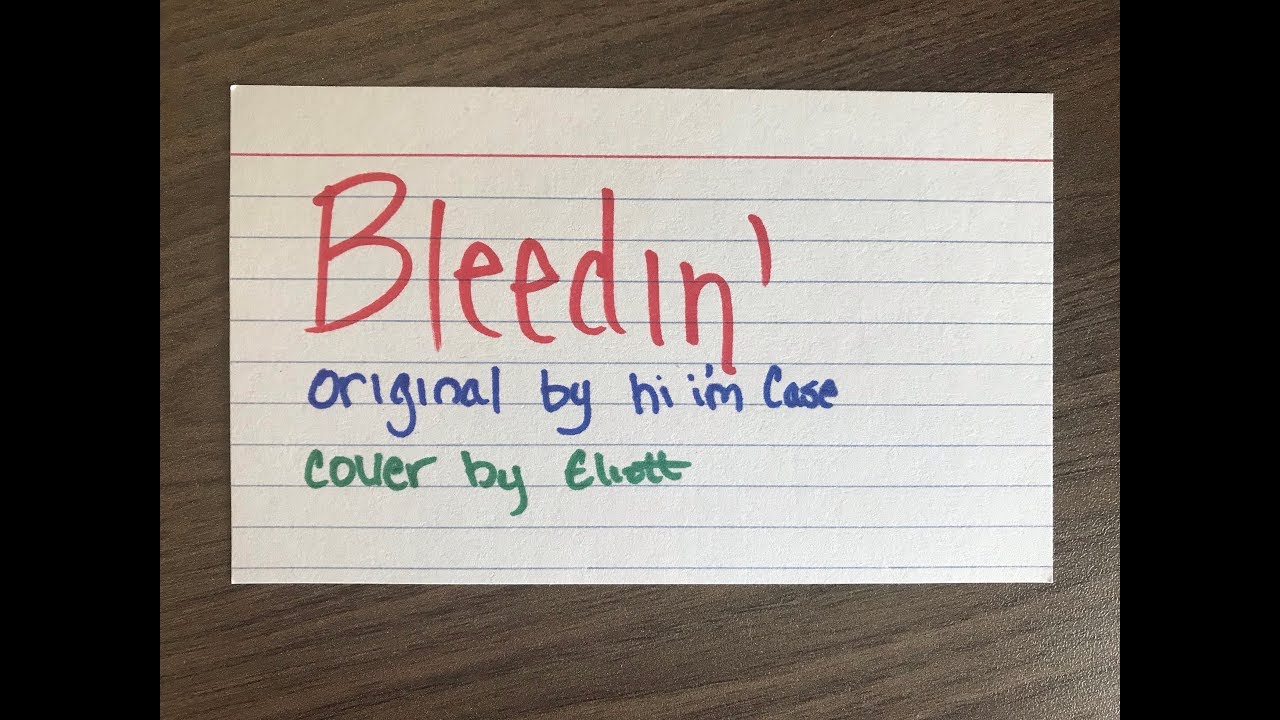 Bleedin'
original by hi i'm Case
cover by Eliott